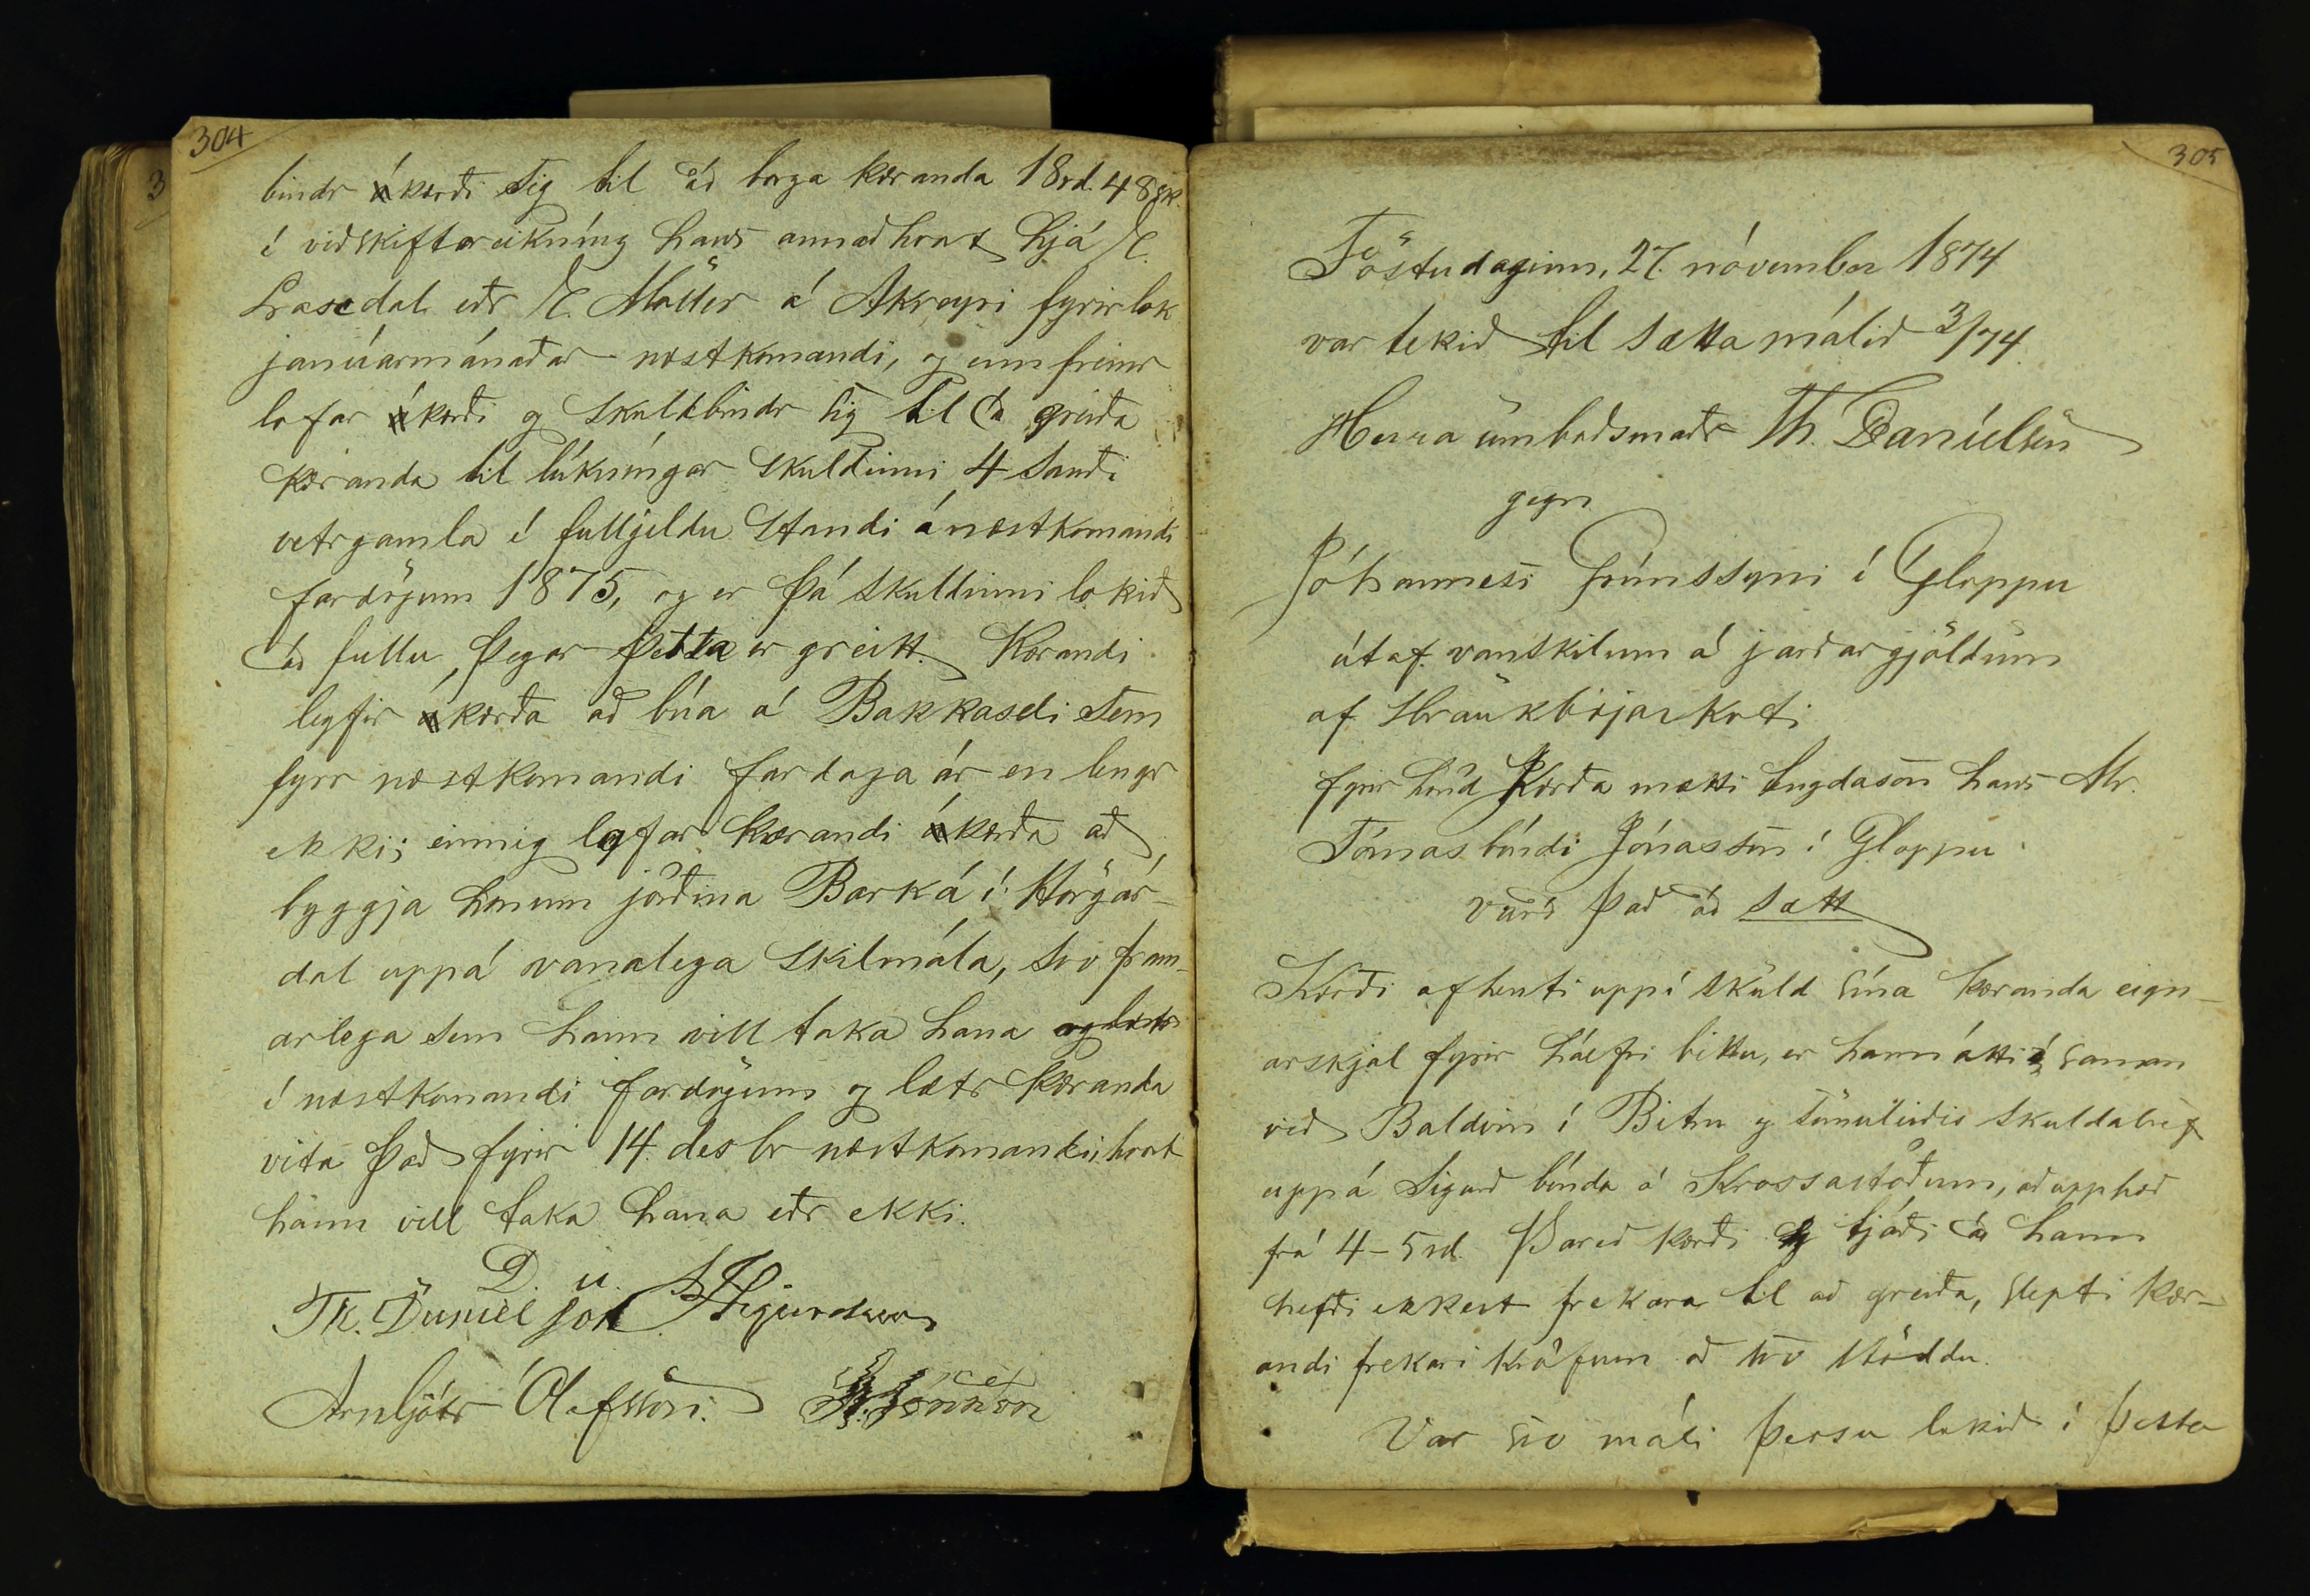 304
bindr kærði sig til að borga kæranda 18rd. 48sk.
í viðskiftareikníng hans annaðhvort hjá E.
Laxdal eðr E. Möller á Akreyri fyrir lok
janúarmánaðar næstkomandi, og enn fremr
lofar kærði og skuldbindr sig til að greiða
kæranda til lúkníngar skuldinni 4 sauði
vetrgamla í fullgildu standi á næstkomandi
fardögum 1875, og er þá skuldinni lokið
að fullu, þegar þetta er greitt. Kærandi
leyfir kærða að búa á Bakkaseli sem
fyrr næstkomandi fardaga ár en lengr
ekki; einnig lofar kærandi kærða að
byggja honum jörðina Barká í Hörgár-
dal uppá vanalega skilmála, svo fram-
arlega sem hann vill taka hana
í næstkomandi fardögum og lætr kæranda
vita það fyrir 14. desbr næstkomandi, hvort
hann vill taka hana eðr ekki.
D. u.
Th. Daníelsson Sigurdsson
Arnljótr Ólafsson. Jónsson
305
Föstudaginn, 27. nóvember 1874
var tekið til sætta málið 3/74
Herra umboðsmaðr Th. Daníelsen
gegn
Jóhannesi Grímssyni í Gloppu
útaf vanskilum á jarðargjöldum
af Hraukbæjarkoti
fyrir hönd kærða mætti tengdason hans Mr.
Tómas bóndi Jónasson í Gloppu
varð það að sætt
Kærði afhenti uppí skuld sína kæranda eign-
arskjal fyrir hálfri bittu, er hann átti saman
við Baldvin í Bitru og sömuleiðis skuldabréf
uppá Sigurð bónda á Krossastöðum, að upphæð
frá 4-5 rd. Þareð kærði tjáði að hann
hefði ekkert frekara til að greiða, slepti kær-
andi frekari kröfum að svo stöddu.
Var svo máli þessu lokið í þetta